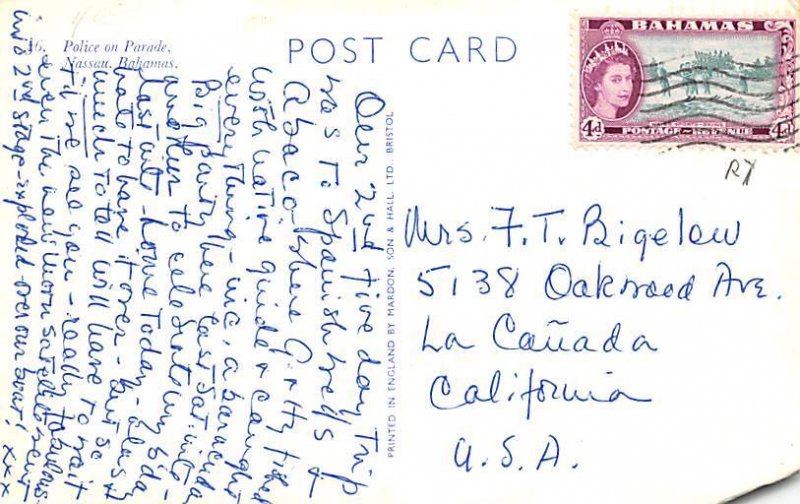 46. Police on Parade,
Nassau, Bahamas.
POST CARD
BAHAMAS
4d
POSTAGE REVENUE
4d
RY
Mrs. F. T. Bigelow
5138 Oakwood Ave.
La Cañada
California
U.S.A.
PRINTED IN ENGLAND BY MARDON, SON & HALL, LTD., BRISTOL
Dear 2nd five day trip
was to Spanish Wells &
Abaco where G. & Ity fished
with native guide & caught
everything - inc. a baracuda
Big party here last Sat. nite -
another to celebrate my b'day
last nite - home today - always
hate to have it over - but
much to tell will have to wait
til we see you - really fabulous
even the news worn satellite sent
and 2nd stage exploded over our boat! xxx